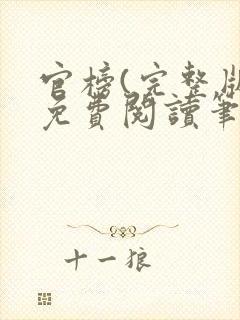 官榜(完整版
免費閱讀筆
十一狼